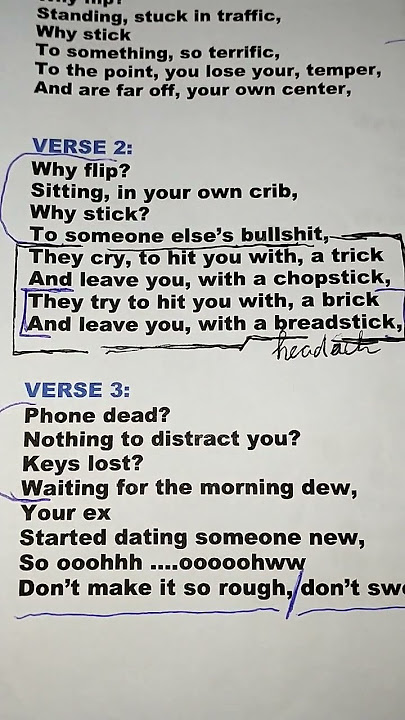 Why flip?
Standing, stuck in traffic,
Why stick
To something, so terrific,
To the point, you lose your, temper,
And are far off, your own center,
VERSE 2:
Why flip?
Sitting, in your own crib,
Why stick?
To someone else's bullshit,
They cry, to hit you with, a trick
And leave you, with a chopstick,
They try to hit you with, a brick
And leave you, with a breadstick,
headach
VERSE 3:
Phone dead?
Nothing to distract you?
Keys lost?
Waiting for the morning dew,
Your ex
Started dating someone new,
So ooohhh ....ooooohww
Don't make it so rough, don't